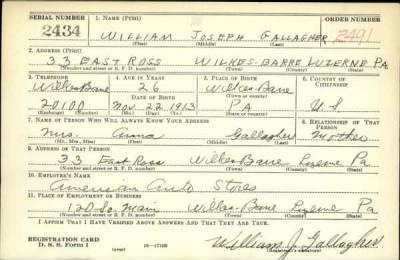 SERIAL NUMBER 1. NAME (Print) ORDER NUMBER
2434 WILLIAM JOSEPH GALLAGHER 2491
(First) (Middle) (Last)
2. ADDRESS (Print)
33 EAST ROSS WILKES-BARRE LUZERNE PA.
(Number and street or R. F. D. number) (Town) (County) (State)
3. TELEPHONE 4. AGE IN YEARS 5. PLACE OF BIRTH 6. COUNTRY OF CITIZENSHIP
Wilkes Barre 26 Wilkes Barre
DATE OF BIRTH (Town or county)
20100 Nov 22 1913 PA U.S
(Exchange) (Number) (Mo.) (Day) (Yr.) (State or country)
7. NAME OF PERSON WHO WILL ALWAYS KNOW YOUR ADDRESS 8. RELATIONSHIP OF THAT PERSON
Mrs. Anna Gallagher Mother
(Mr., Mrs., Miss) (First) (Middle) (Last)
9. ADDRESS OF THAT PERSON
33 East Ross Wilkes Barre Luzerne Pa
(Number and street or R. F. D. number) (Town) (County) (State)
10. EMPLOYER'S NAME
American Auto Stores
11. PLACE OF EMPLOYMENT OR BUSINESS
120 So. Main Wilkes-Barre Luzerne Pa
(Number and street or R. F. D. number) (Town) (County) (State)
I AFFIRM THAT I HAVE VERIFIED ABOVE ANSWERS AND THAT THEY ARE TRUE.
REGISTRATION CARD
D. S. S. Form 1 (over) 16—17105 William J. Gallagher
(Registrant's signature)